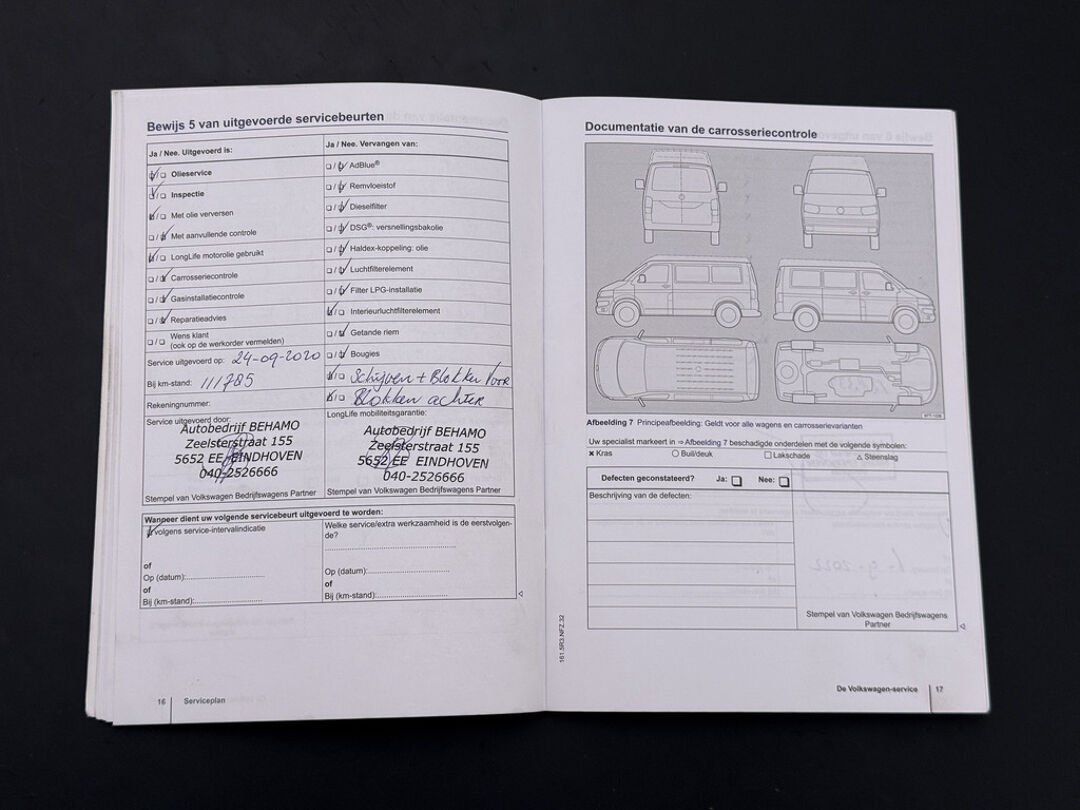 Bewijs 5 van uitgevoerde servicebeurten
Ja / Nee. Uitgevoerd is:
Olieservice
Inspectie
Met olie verversen
Met aanvullende controle
LongLife motorolie gebruikt
Carrosseriecontrole
Gasinstallatiecontrole
Reparatieadvies
Wens klant
(ook op de werkorder vermelden)
Service uitgevoerd op: 24-09-2020
Bij km-stand: 111785
Rekeningnummer:
Service uitgevoerd door:
Autobedrijf BEHAMO
Zeelsterstraat 155
5652 EE EINDHOVEN
040-2526666
Stempel van Volkswagen Bedrijfswagens Partner
Ja / Nee. Vervangen van:
AdBlue®
Remvloeistof
Dieselfilter
DSG®: versnellingsbakolie
Haldex-koppeling: olie
Luchtfilterelement
Filter LPG-installatie
Interieurluchtfilterelement
Getande riem
Bougies
Schijven + Blokken Voor
Blokken achter
LongLife mobiliteitsgarantie:
Autobedrijf BEHAMO
Zeelsterstraat 155
5652 EE EINDHOVEN
040-2526666
Stempel van Volkswagen Bedrijfswagens Partner
Wanneer dient uw volgende servicebeurt uitgevoerd te worden:
volgens service-intervalindicatie
of
Op (datum):
of
Bij (km-stand):
Welke service/extra werkzaamheid is de eerstvolgen-
de?
Op (datum):
of
Bij (km-stand):
16 Serviceplan
Documentatie van de carrosseriecontrole
Afbeelding 7 Principeafbeelding: Geldt voor alle wagens en carrosserievarianten
Uw specialist markeert in ⇒ Afbeelding 7 beschadigde onderdelen met de volgende symbolen:
× Kras ○ Buil/deuk □ Lakschade △ Steenslag
Defecten geconstateerd? Ja: Nee:
Beschrijving van de defecten:
Stempel van Volkswagen Bedrijfswagens
Partner
161.5R3.NFZ.32
De Volkswagen-service 17